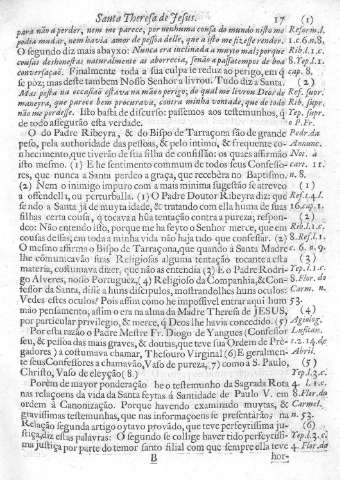 Santa Theresa de Jesus. 17
para não a perder, nem me parece, por nenhuma cousa do mundo nisto me
podia mudar, nem havia amor de pessoa delle, que a isto me fizesse render.
O segundo diz mais abayxo: Nunca era inclinada a muyto mal; porque
cousas deshonestas naturalmente as aborrecia, senão a passatempos de boa
conversaçaõ. Finalmente toda a sua culpa se reduz ao perigo, em q
se poz; mas deste tambem Nosso Senhor a livrou. Tudo diz a Santa.
Mas posta na occasiaõ estava na mão o perigo, do qual me livrou Deos de
maneyra, que parece bem procurava, contra minha vontade, que de todo
não me perdesse. Isto basta de discurso: passemos aos testemunhos, q̃
de todo assegurão esta verdade.
O do Padre Ribeyra, & do Bispo de Tarraçona são de grande
peso, pela authoridade das pessoas, & pelo intimo, & frequente co-
nhecimento, que tiveraõ de sua filha de confissaõ: os quaes affirmaõ
isto mesmo. (1) E he sentimento commum de todos seus Confesso-
res, que nunca a Santa perdeo a graça, que recebera no Baptismo.
(2) Nem o inimigo impuro com a mais minima sugestão se atreveo
a offendella, ou perturballa. (1) O Padre Doutor Ribeyra diz que
sendo a Santa já de muyta idade, & tratando com ella huma de suas
filhas certa cousa, q tocava a hũa tentação contra a pureza; respon-
deo: Não entendo isto, porque me ha feyto o Senhor merce, que em
cousas dessas, em toda a minha vida não haja tido que confessar. (2)
O mesmo affirma o Bispo de Tarraçona, que quando á Santa Madre
lhe cõmunicavão suas Religiosas alguma tentação tocante a esta
materia, costumava dizer, que não as entendia (3) E o Padre Rodri-
go Alveres, nosso Portuguez, q Religioso da Companhia, & Con-
fessor da Santa, disse a huns discipulos, mostrandolhes huns oculos:
Vedes estes oculos? Pois assim como he impossivel entrar aqui hum
máo pensamento, assim o era na alma da Madre Theresa de JESUS,
por particular privilegio, & merce, q Deos lhe havia concedido. (5)
Por esta razão o Padre Mestre Fr. Diogo de Yangues (Confessor
seu, & pessoa das mais graves, & doutas, que teve sua Ordem de Pré-
gadores) a costumava chamar, Thesouro Virginal (6) E geralmen-
te seus Confessores a chamavão, Vaso de pureza, (7) como a S. Paulo,
Christo, Vaso de eleyção (8)
Porém de mayor ponderação he o testemunho da Sagrada Rota
nas relaçoens da vida da Santa feytas á Santidade de Paulo V. em
ordem á Canonização. Porque havendo examinado muytas, &
gravissimas testemunhas, que nas informaçoens se presentárão; na
Relação segunda artigo oytavo provão, que teve perfeytissima ju-
stiça, diz estas palavras: O segundo se collige haver tido perfeytissi-
ma justiça por parte do temor santo filial com que sempre ella teve
B hor-
(1)
Reform. l.
1. c. 6. n.
Rib. l. 1. c.
8. Yep. l. 1.
cap. 8.
(2)
Ref. supr.
Rib. supr.
Yep. supr.
o P. Fr.
Pedr. da
Annunc.
Not. á
cart. 11.
n. 8.
(1)
Ref. l. 4. l.
16. cap. 1.
(2)
Rib. l. 1. c.
8. Ref. l. 1.
6. n. 9.
(3)
Yep. l. 1. c.
8. Flor. do
Carm. n.
53.
(4)
Agiolog.
Lusitan.
(5)
Yep. l. 3. c.
(6)
Yep. l. 3. c.
4. Flor. do